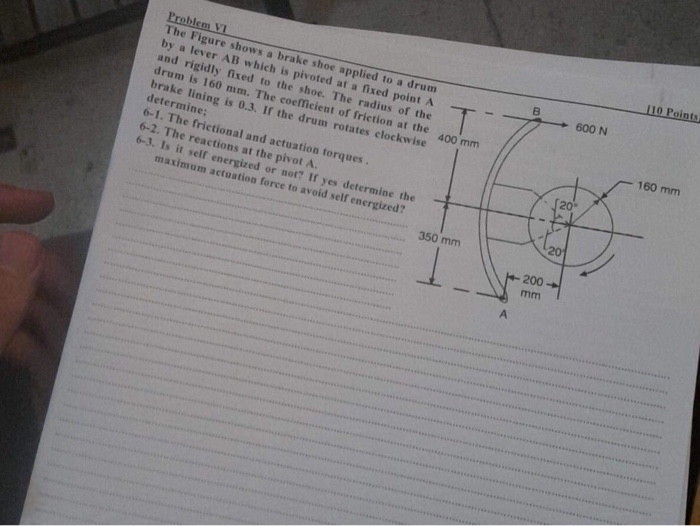 Problem VI
[10 Points
The Figure shows a brake shoe applied to a drum
by a lever AB which is pivoted at a fixed point A
and rigidly fixed to the shoe. The radius of the
drum is 160 mm. The coefficient of friction at the
brake lining is 0.3. If the drum rotates clockwise
determine;
6-1. The frictional and actuation torques.
6-2. The reactions at the pivot A.
6-3. Is it self energized or not? If yes determine the
maximum actuation force to avoid self energized?
B
600 N
400 mm
160 mm
20°
20°
350 mm
200
mm
A